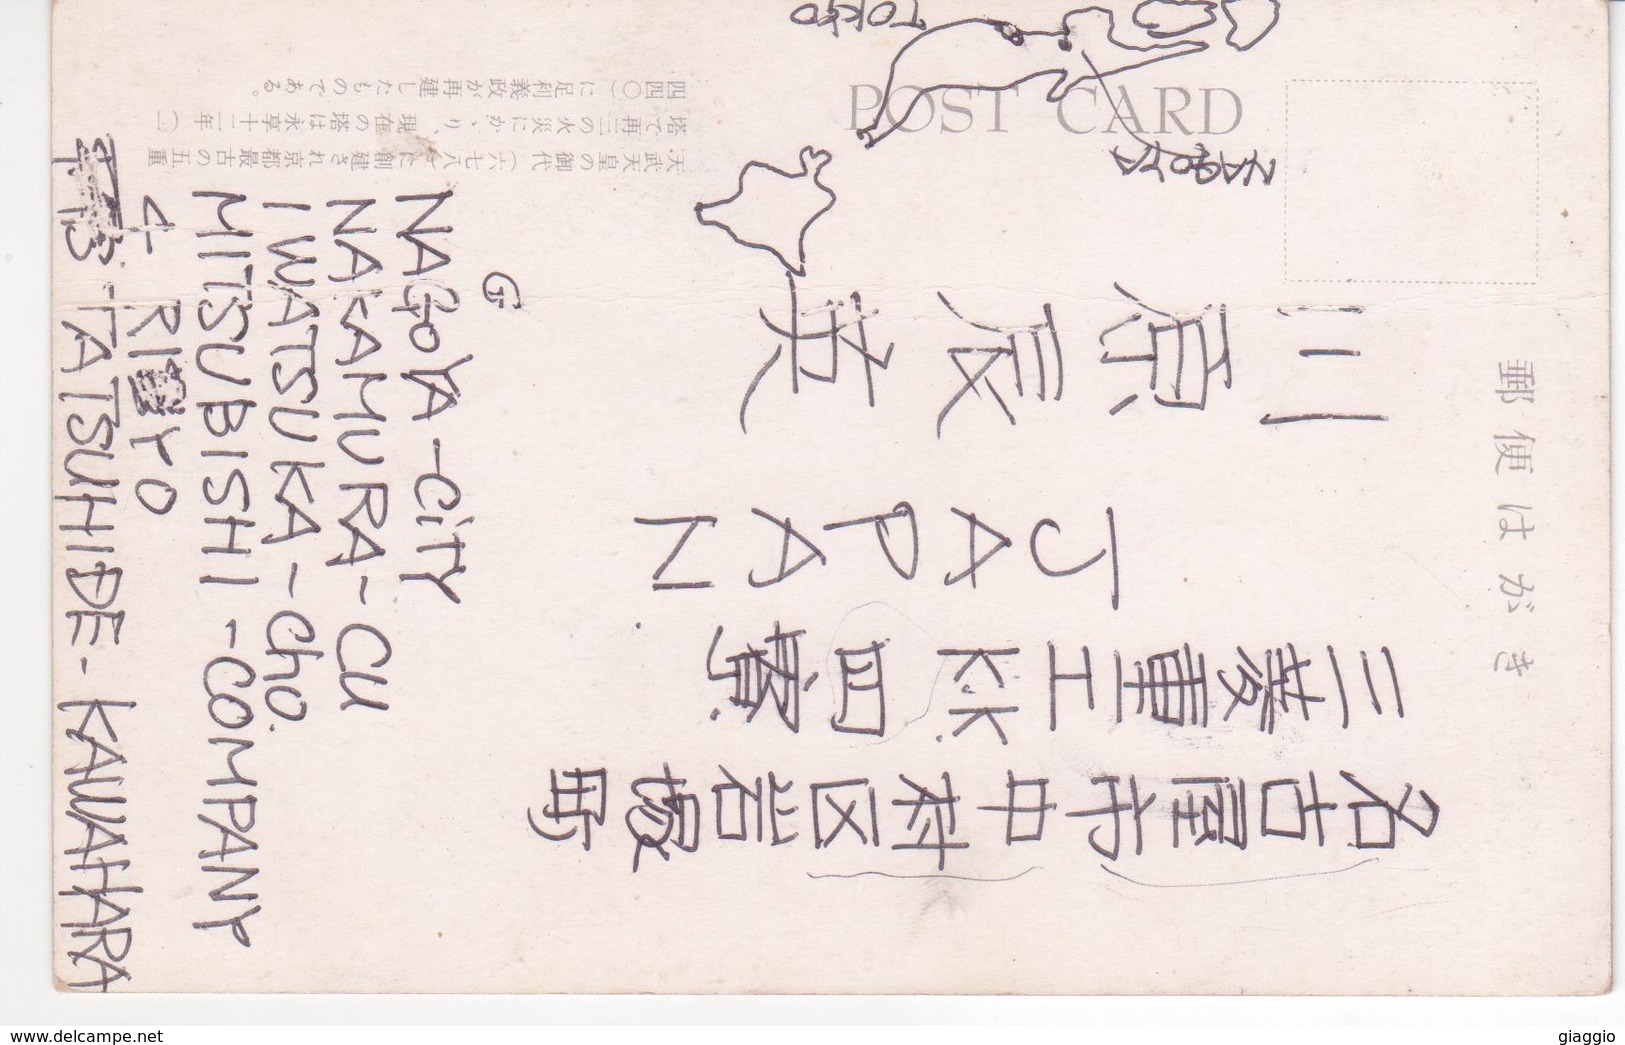 POST CARD
郵便はがき
名古屋市中村区岩塚町
三菱重工KK四寮
JAPAN
川原辰英
TOKYO
NAGOYA
天武天皇の御代(六七八年)に創建され京都最古の五重
塔で再三の火災にかゝり、現在の塔は永享十二年(一
四四〇)に足利義政が再建したものである。
G
NAGOYA-CITY
NAKAMURA-CU
IWATSUKA-Cho.
MITSUBISHI-COMPANY
4-RIYO
TATSUHIDE-KAWAHARA
www.delcampe.net
giaggio